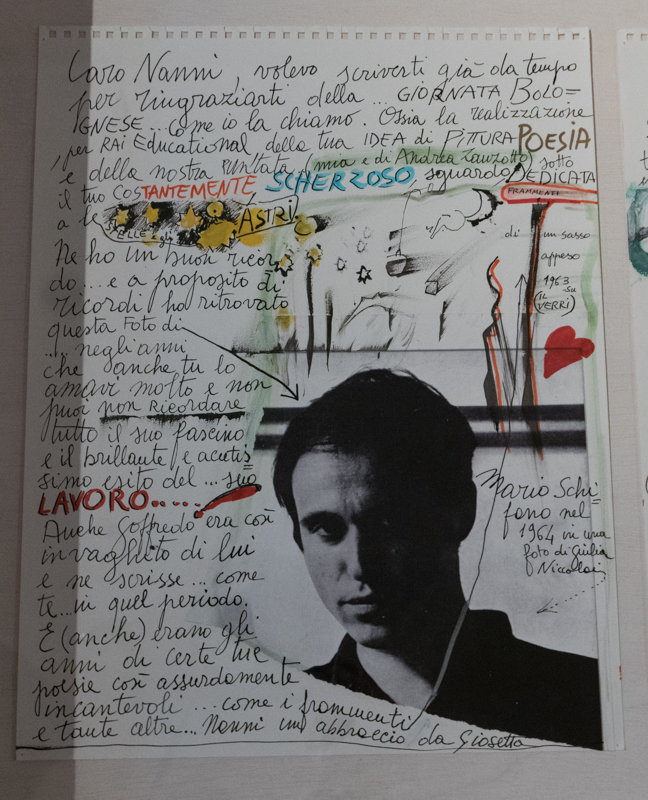 Caro Nanni, volevo scriverti già da tempo
per ringraziarti della ... GIORNATA BOLO=
GNESE ... come io la chiamo. Ossia la realizzazione
, per RAI Educational della tua IDEA di PITTURA POESIA
e della nostra puntata, (mia e di Andrea Zanzotto) sotto
il tuo COSTANTEMENTE SCHERZOSO sguardo DEDICATA
a le STELLE e gli ASTRI
FRAMMENTI
di un sasso
appeso
1963
su
(IL
VERRI)
Ne ho un buon ricor
do .... e a proposito di
ricordi ho ritrovato
questa Foto di
... negli anni
che anche tu lo
amavi molto e non
puoi non Ricordare
tutto il suo fascino
e il brillante e acutis=
simo esito del ... suo
LAVORO.....
Anche Goffredo era così
invaghito di lui
e ne scrisse ... come
te ... in quel periodo.
E (anche) erano gli
anni di certe tue
poesie così assurdamente
incantevoli ... come i frammenti
e tante altre ... Nanni un abbraccio da Giosetta
Mario Schi=
fano nel
1964 in una
foto di Giulia
Niccolai